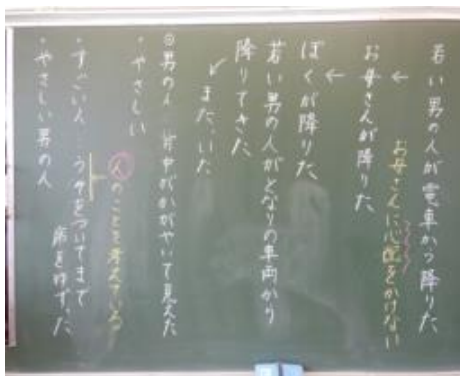 若い男の人が電車から降りた、
お母さんに心配をかけない
お母さんが降りた
ぼくが降りた、
若い男の人がとなりの車両から
降りてきた
また、いた
◎男の人 背中がかがやいて見えた
・やさしい
人のことを考えている
・すごい人…うそをついてまで
席をゆずった
・やさしい男の人